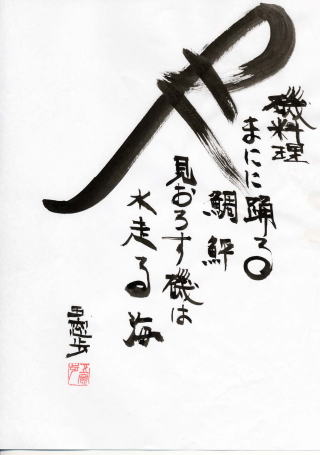 磯料理
まにに踊る
鯛鮃
見おろす磯は
水走る海